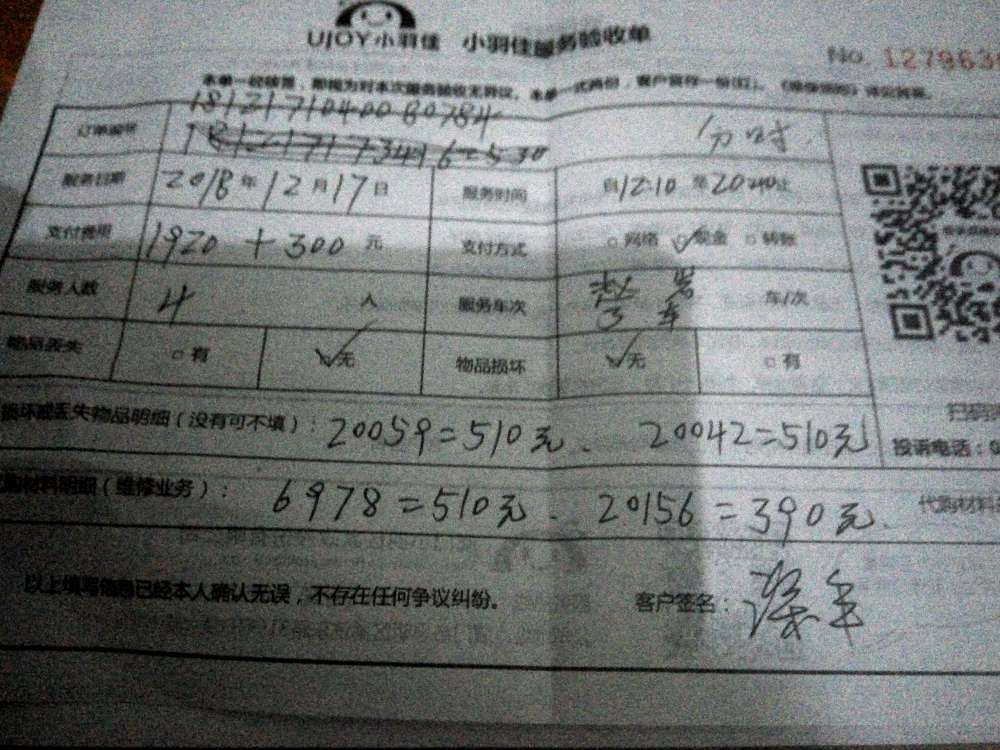 UJOY小羽佳 小羽佳服务验收单
No. 1279636
本单一经核签，即视为对本次服务验收无异议。本单一式两份，客户留存一份
18121710400 80784
订单编号
分时
服务日期 2018年12月17日 服务时间 自12:10 至20:40止
支付费用 1920+300元 支付方式 □网络 ☑现金 □转账
服务人数 4人 服务车次 车/次
物品丢失 □有 ☑无 物品损坏 ☑无 □有
损坏或丢失物品明细（没有可不填）：20059=510元、20042=510元
投诉电话：
代购材料明细（维修业务）：6978=510元、20156=390元、
代购材料
以上填写信息已经本人确认无误，不存在任何争议纠纷。 客户签名：